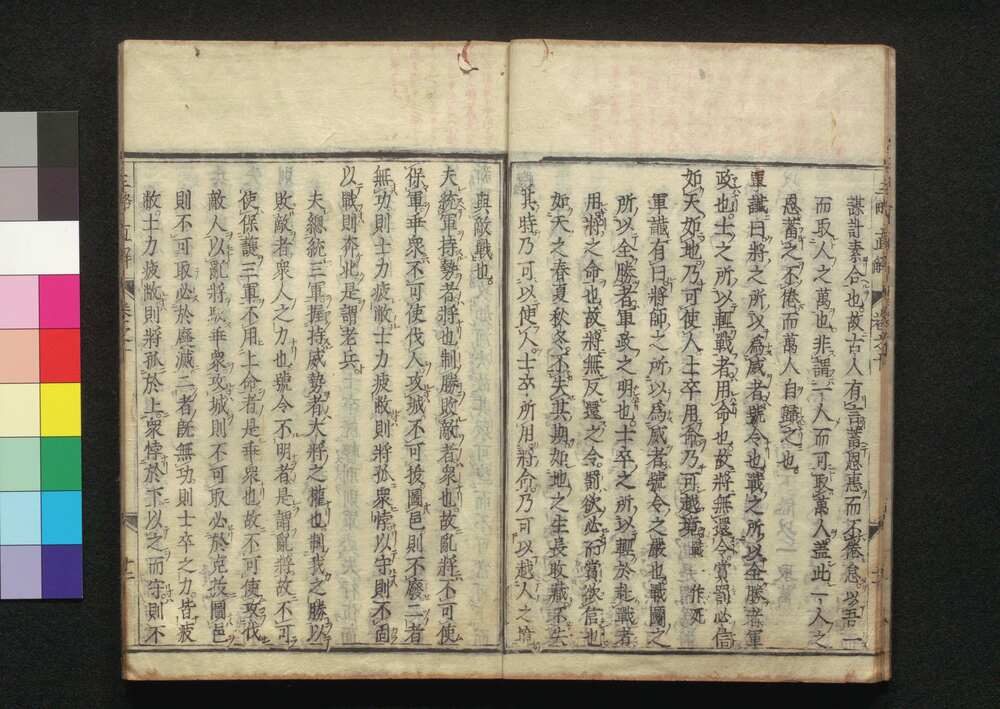 謀計素合也故古人有言蓄恩惠而不倦怠以吾一
而取人之萬也非謂一人而可取萬人蓋此一人之
恩蓄之不倦而萬人自歸之也
軍讖曰將之所以為威者號令也戰之所以全勝者軍
政也士之所以輕戰者用命也故將無還令賞罰必信
如天如地乃可使人士卒用命乃可越境
軍讖有曰將師之所以為威者號令之嚴也戰圖之
所以全勝者軍政之明也士卒之所以輕於戰者
用將之命也故將無反還之令罰欲必而賞欲信也
如天之春夏秋冬不失其期如地之生長收藏不失
其時乃可以使人士卒所用將命乃可以越人之境
與敵戰也
夫統軍持勢者將也制勝敗敵者衆也故亂將不可使
保軍乖衆不可使伐人攻城不可拔圖邑則不廢二者
無功則士力疲敝士力疲敝則將孤衆悖以守則不固
以戰則奔北是謂老兵
夫總統三軍握持威勢者大將之權也制我之勝以
敗敵者衆人之力也號令不明者是謂亂將故不可
使保護三軍不用上命者是乖衆也故不可使攻伐
敵人以亂將乖衆攻城則不可取必於克拔圖邑
則不可取必於廢滅二者既無功則士卒之力皆疲
敝士力疲敝則將孤於上衆悖於下以之而守則不